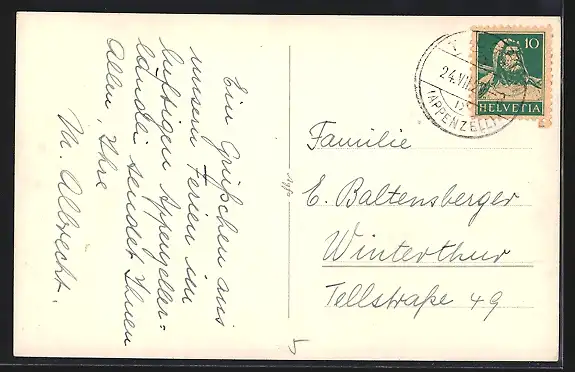 Ein Grüßchen aus
unsern Ferien im
luftigen Appenzeller-
ländli sendet Ihnen
Allen, Ihre
M. Albrecht.
10
HELVETIA
24.VII
(APPENZELL)
Familie
E. Baltensberger
Winterthur
Tellstraße 49